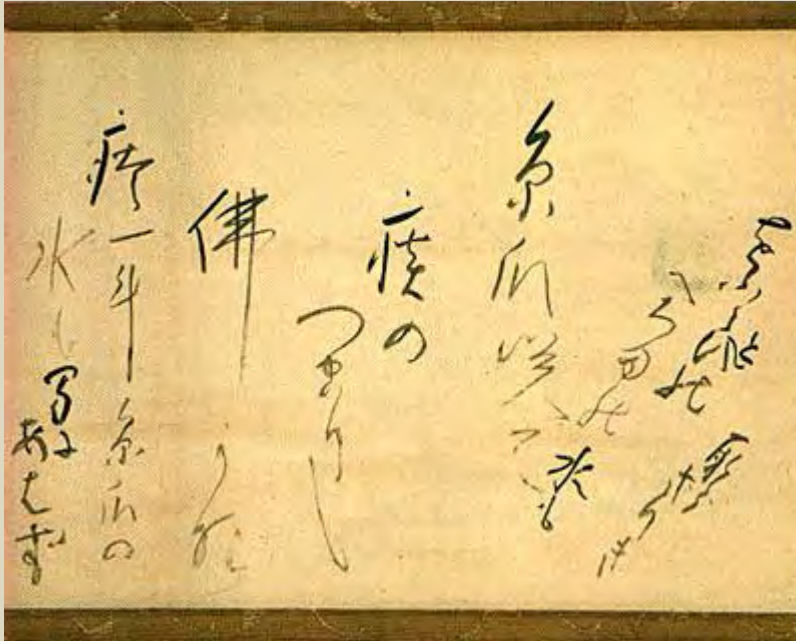 をとゝひの
へちまの
水も
取らざりき
糸瓜咲て
痰の
つまりし
佛かな
痰一斗糸瓜の
水も間に
あはず